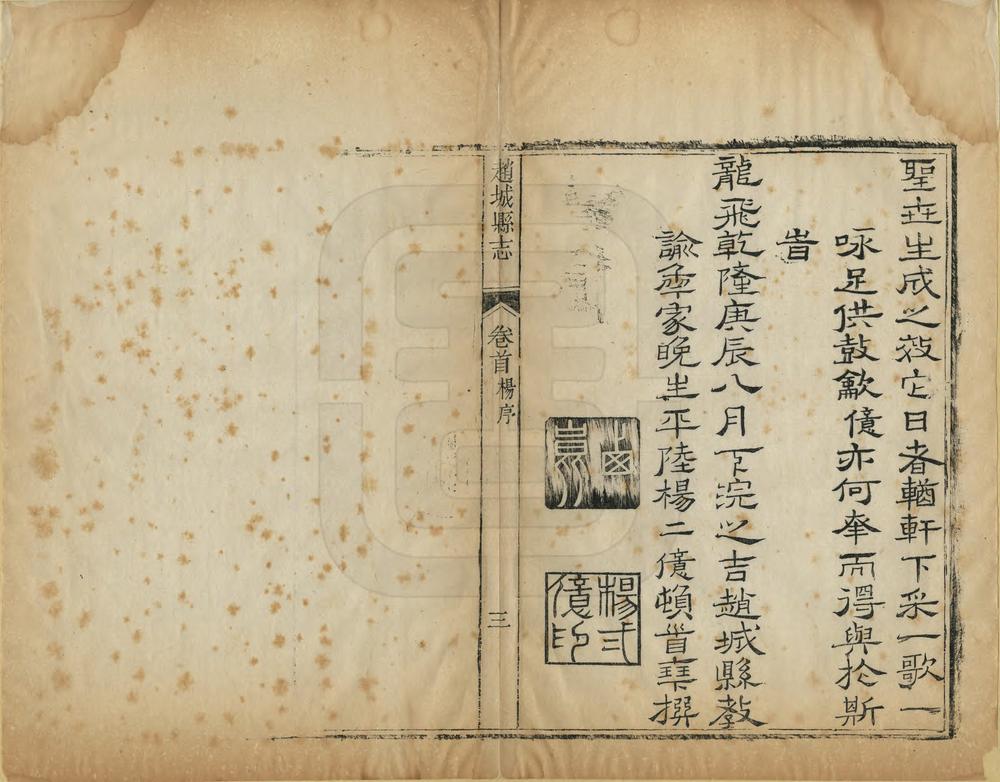 聖世生成之效它日者輶軒下采一歌一
咏足供鼓龡億亦何幸而得與於斯
旹
龍飛乾隆庚辰八月下浣之吉趙城縣教
諭盂家晚生平陸楊二億頓首拜撰
楊弌億印
趙城縣志
卷首楊序
三